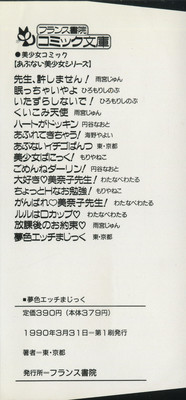 フランス書院
コミック文庫
●美少女コミック
【あぶない美少女シリーズ】
先生、許しません! 雨宮じゅん
眠っちゃいやよ ひろもりしのぶ
いたずらしないで! ひろもりしのぶ
くいこみ天使 雨宮じゅん
ハートがドッキン 円谷なおと
あふれてきちゃう! 海野やよい
あぶないイチゴぱんつ 東・京都
美少女ぱにっく! もりやねこ
ごめんねダーリン! 円谷なおと
大好き♡美奈子先生! わたなべわたる
ちょっとHなお勉強! もりやねこ
がんばれ♡美奈子先生! わたなべわたる
ルルはDカップ♡ わたなべわたる
放課後のお約束♡ 雨宮じゅん
夢色エッチまじっく 東・京都
●夢色エッチまじっく
定価390円(本体379円)
1990年3月31日ー第1刷発行
著者ー東・京都
発行所ーフランス書院